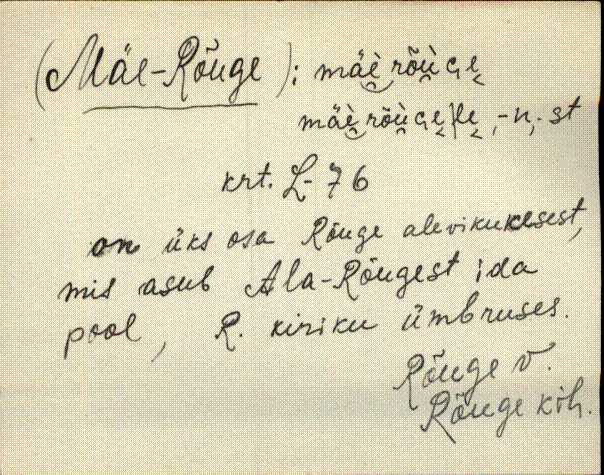 (Mäe-Rõuge): mäè̯rõù̯ɢe̬
mäè̯rõù̯ɢe̬|le̬, -n, -st
krt. L-76
on üks osa Rõuge alevikukesest,
mis asub Ala-Rõugest ida
pool, R. kiriku ümbruses.
Rõuge v.
Rõuge kih.